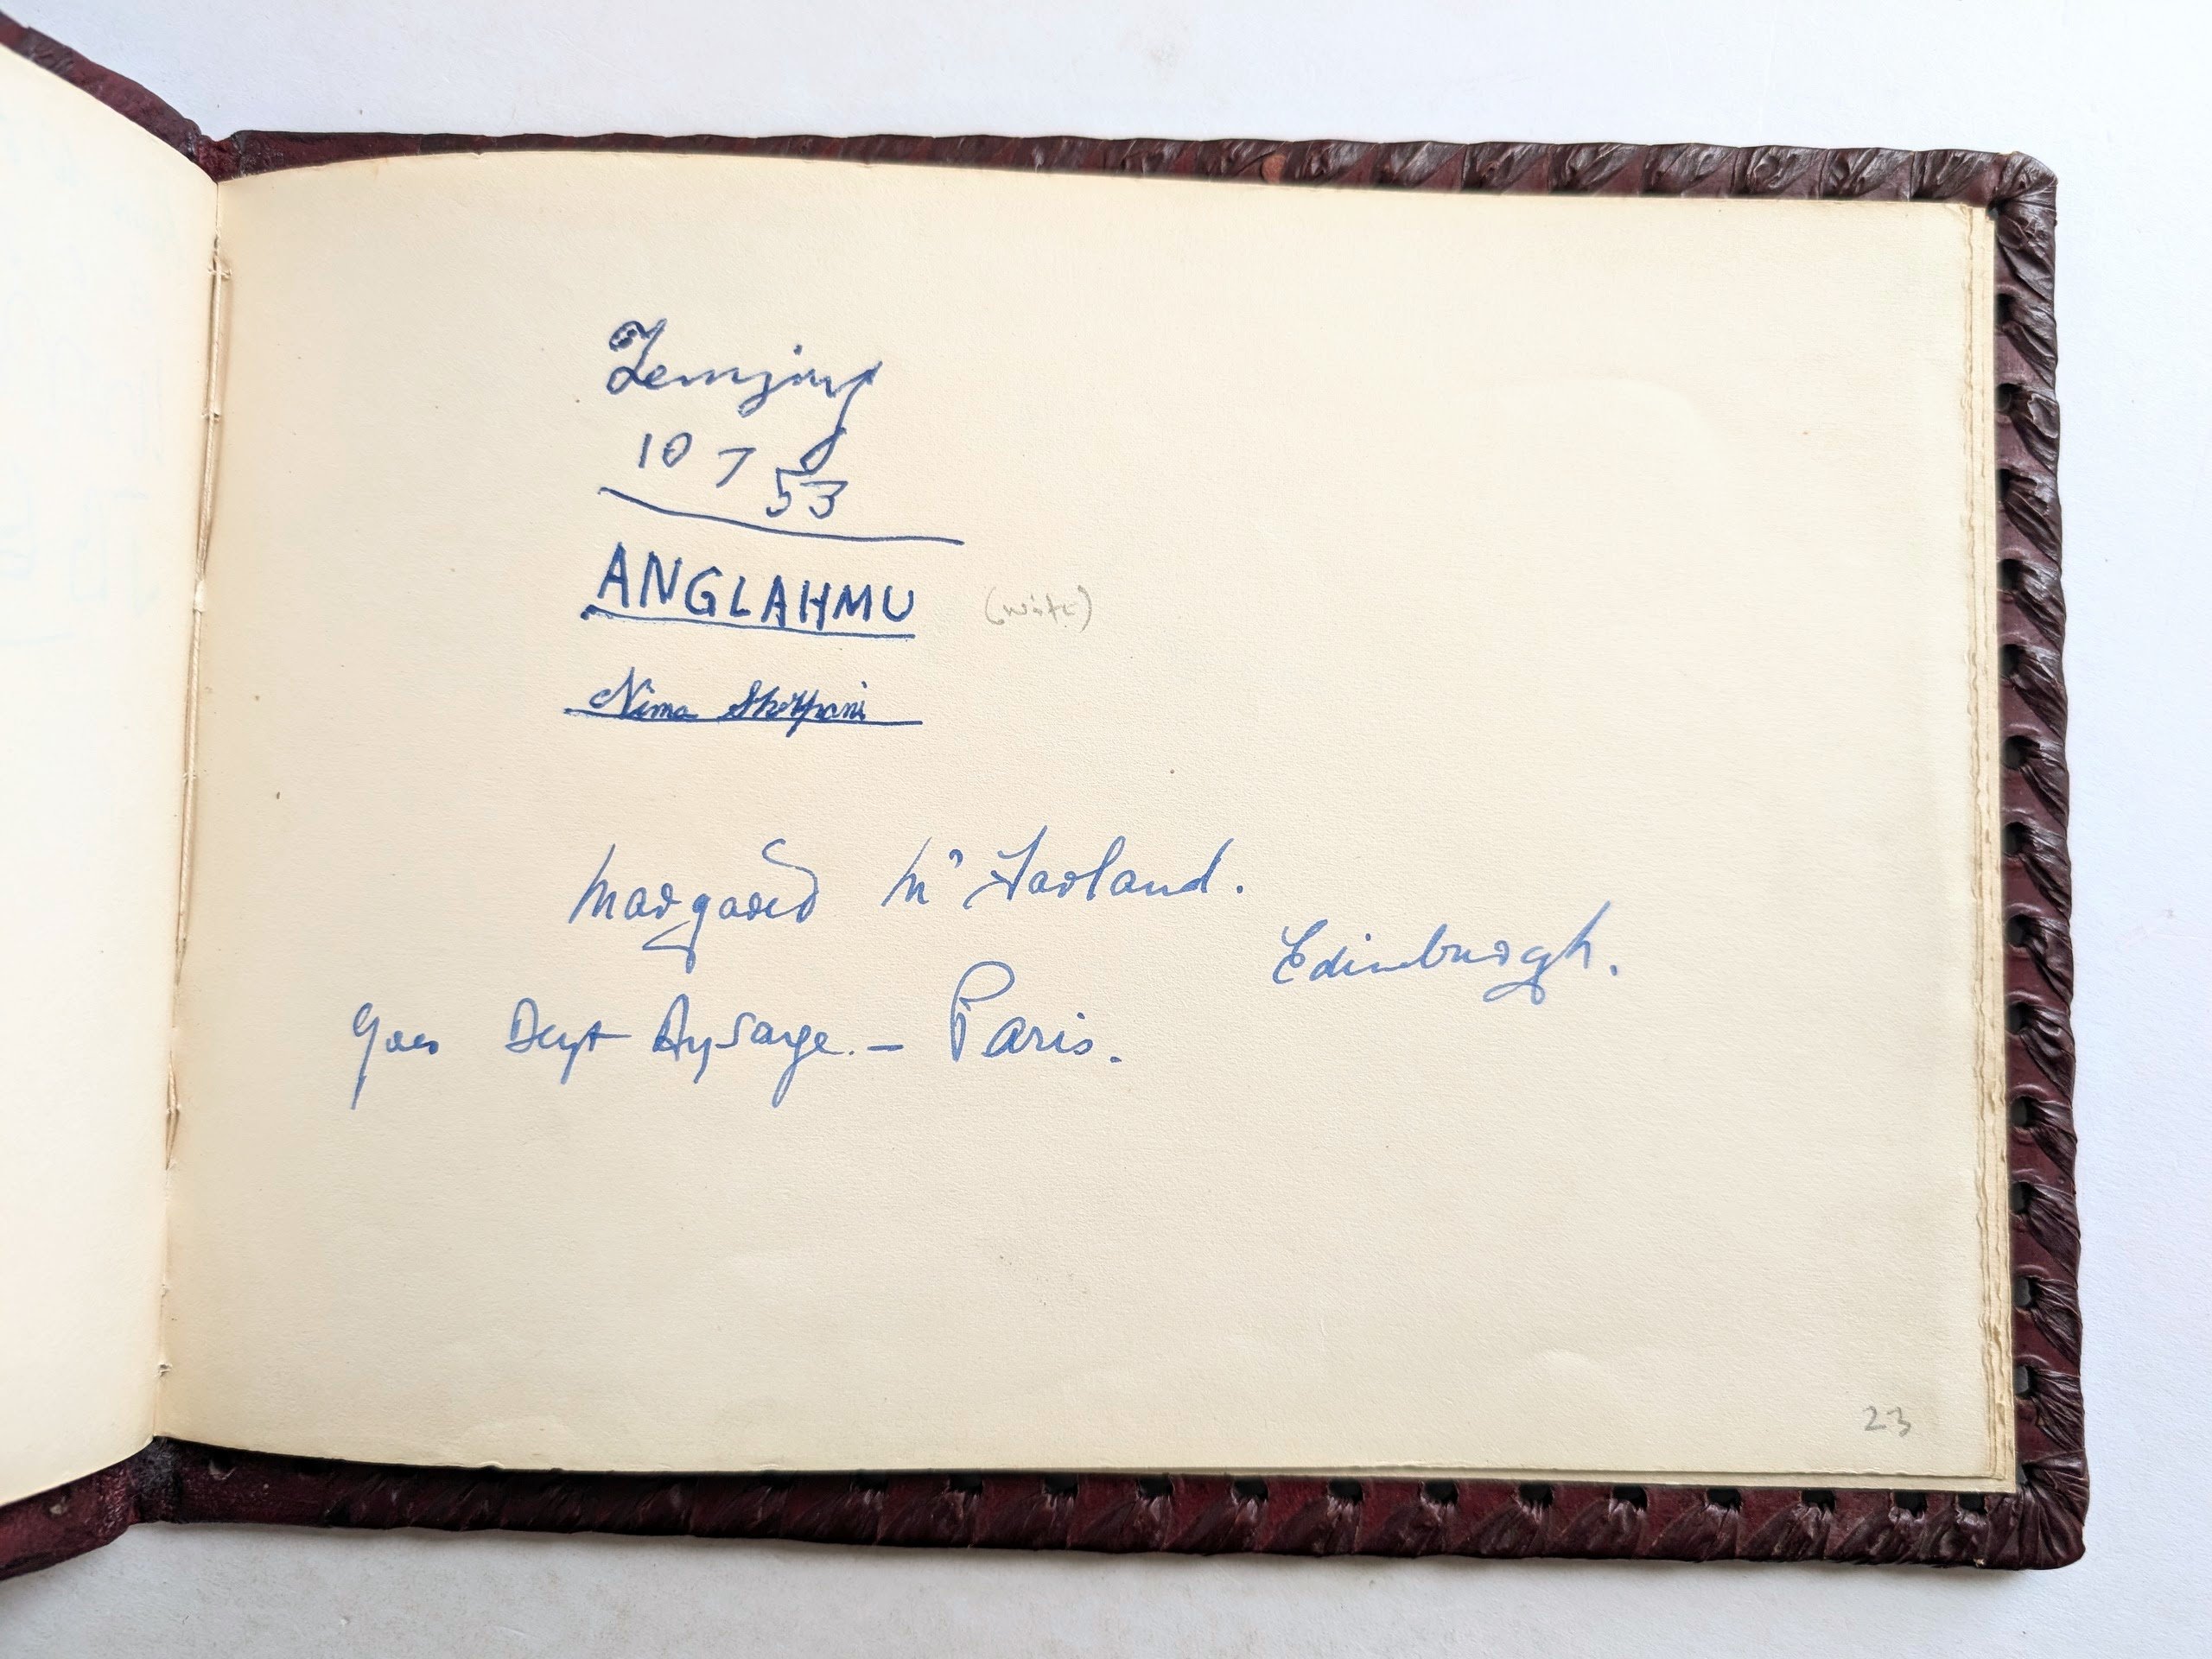 Tenzing
10 7 53
ANGLAHMU (wife)
Nima Sherpani
Margaret McFarland.
Edinburgh.
Paris.
23